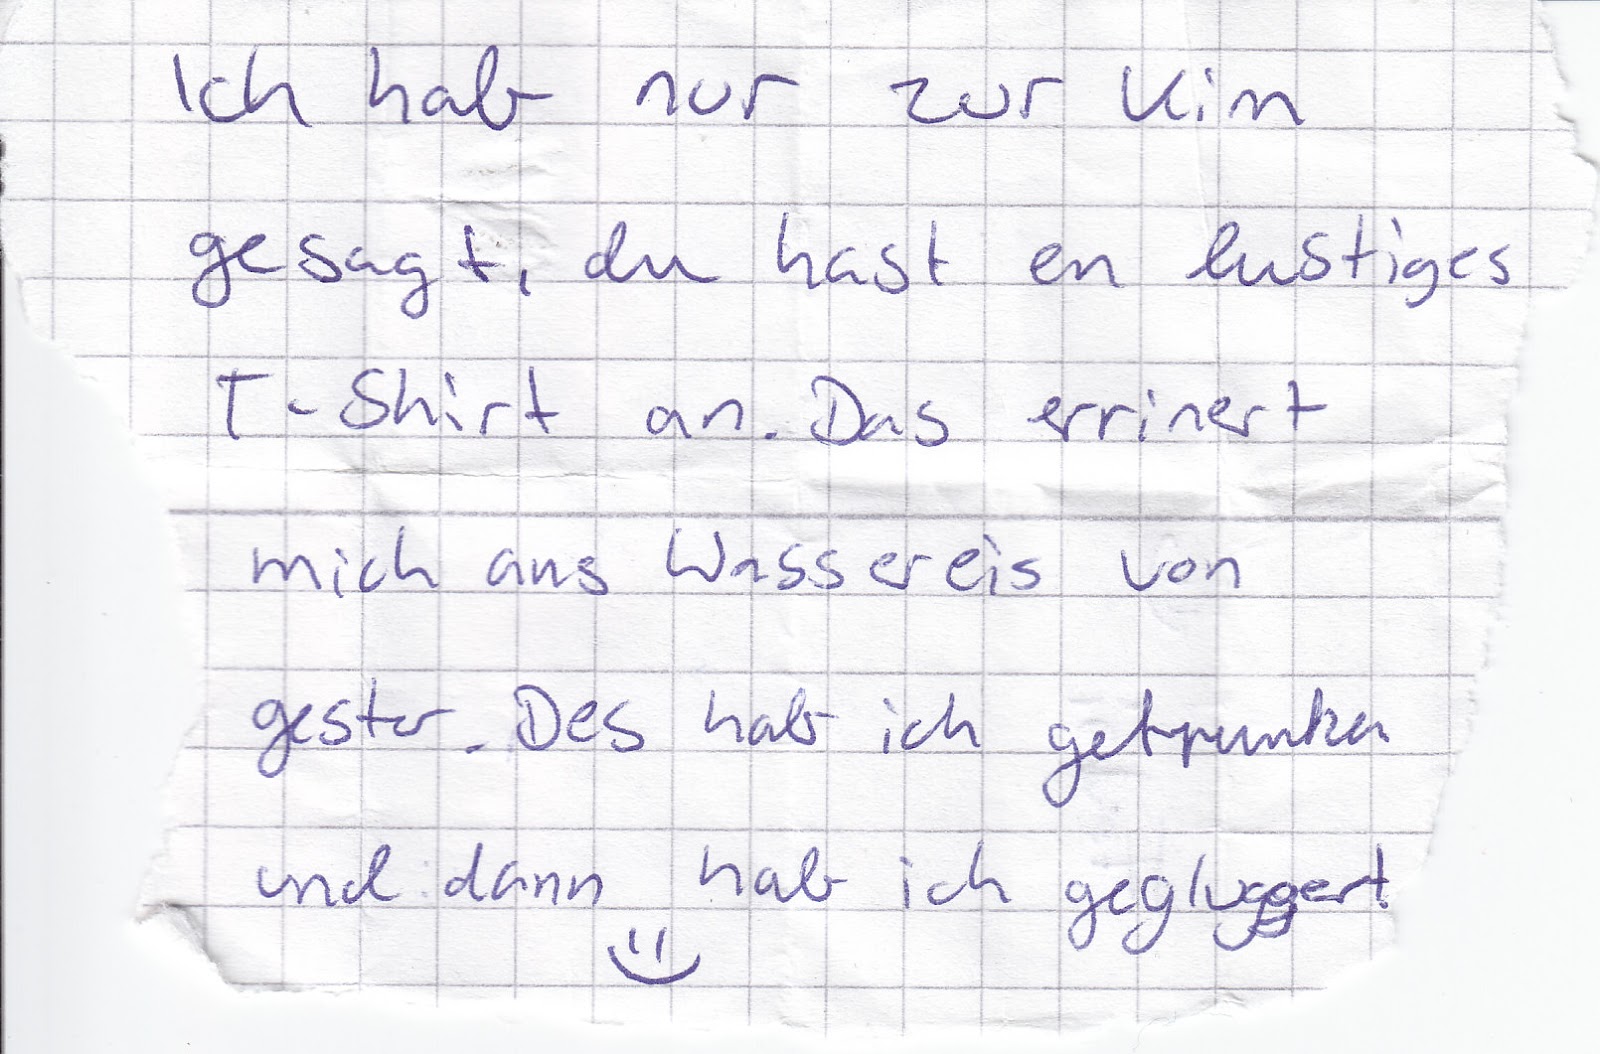 Ich hab nur zur Kim
gesagt, du hast en lustiges
T-Shirt an. Das errinert
mich ans Wassereis von
gester. Des hab ich getrunken
und dann hab ich gegluggert